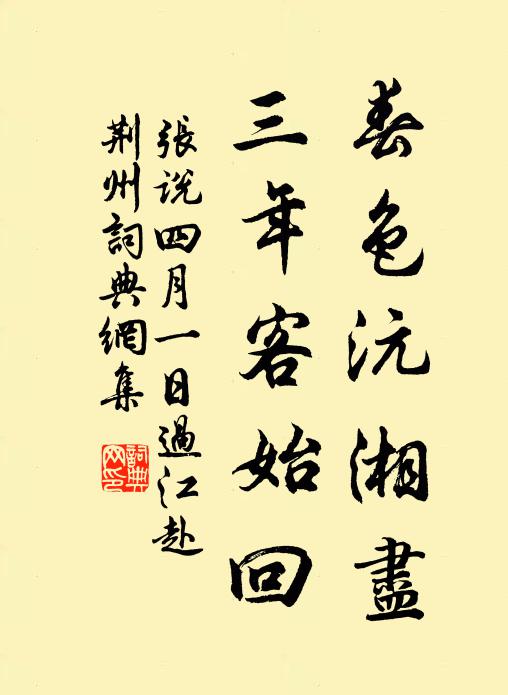 春色沅湘盡
三年客始回
張說四月一日過江赴
荆州詞典網集
詞典
网印